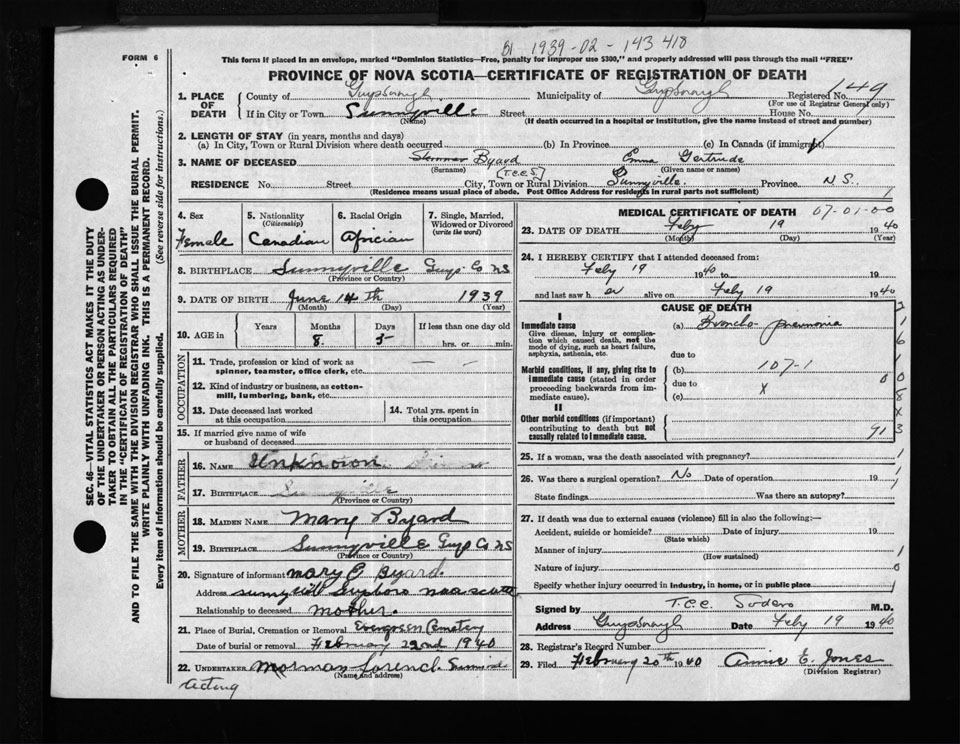 1939-02-143 410
FORM 6
This form if placed in an envelope, marked "Dominion Statistics—Free, penalty for improper use $300," and properly addressed will pass through the mail "FREE"
PROVINCE OF NOVA SCOTIA—CERTIFICATE OF REGISTRATION OF DEATH
SEC. 46—VITAL STATISTICS ACT MAKES IT THE DUTY
OF THE UNDERTAKER OR PERSON ACTING AS UNDER-
TAKER TO OBTAIN ALL THE PARTICULARS REQUIRED
IN THE "CERTIFICATE OF REGISTRATION OF DEATH"
AND TO FILE THE SAME WITH THE DIVISION REGISTRAR WHO SHALL ISSUE THE BURIAL PERMIT.
WRITE PLAINLY WITH UNFADING INK. THIS IS A PERMANENT RECORD.
Every item of information should be carefully supplied. (See reverse side for instructions.)
1. PLACE OF DEATH
County of Guysborough Municipality of Guysborough Registered No. 149
(For use of Registrar General only)
If in City or Town Sunnyville Street House No.
(Name) (If death occurred in a hospital or institution, give the name instead of street and number)
2. LENGTH OF STAY (in years, months and days)
(a) In City, Town or Rural Division where death occurred (b) In Province (c) In Canada (if immigrant)
3. NAME OF DECEASED Byard Emma Gertrude
(Surname) (Given name or names)
T.C.C.S.
RESIDENCE No. Street City, Town or Rural Division Sunnyville Province N S.
(Residence means usual place of abode. Post Office Address for residents in rural parts not sufficient)
4. Sex Female
5. Nationality (Citizenship) Canadian
6. Racial Origin African
7. Single, Married, Widowed or Divorced (write the word)
8. BIRTHPLACE Sunnyville Guys. Co NS
(Province or Country)
9. DATE OF BIRTH June 14th 1939
(Month) (Day) (Year)
10. AGE in Years Months 8. Days 5- If less than one day old hrs. or min.
OCCUPATION
11. Trade, profession or kind of work as
spinner, teamster, office clerk, etc.
12. Kind of industry or business, as cotton-
mill, lumbering, bank, etc.
13. Date deceased last worked
at this occupation
14. Total yrs. spent in
this occupation
15. If married give name of wife
or husband of deceased
FATHER
16. NAME Unknown
17. BIRTHPLACE Sunnyville
(Province or Country)
MOTHER
18. MAIDEN NAME Mary Byard
19. BIRTHPLACE Sunnyville Guys Co NS
(Province or Country)
20. Signature of informant Mary E Byard.
Address
Relationship to deceased mother.
21. Place of Burial, Cremation or Removal Evergreen Cemetery
Date of burial or removal February 22nd 1940
22. UNDERTAKER
(Name and address)
acting
MEDICAL CERTIFICATE OF DEATH 07-01-00
23. DATE OF DEATH Feby 19 1940
(Month) (Day) (Year)
24. I HEREBY CERTIFY that I attended deceased from:
Feby 19 1940 to 19
and last saw her alive on Feby 19 1940
CAUSE OF DEATH
I
Immediate cause
Give disease, injury or complica-
tion which caused death, not the
mode of dying, such as heart failure,
asphyxia, asthenia, etc.
(a) Broncho pneumonia
due to
Morbid conditions, if any, giving rise to
immediate cause (stated in order
proceeding backwards from im-
mediate cause).
(b) 107-1
due to x
(c)
II
Other morbid conditions (if important)
contributing to death but not
causally related to immediate cause.
25. If a woman, was the death associated with pregnancy?
26. Was there a surgical operation? No Date of operation 19
State findings Was there an autopsy?
27. If death was due to external causes (violence) fill in also the following:—
Accident, suicide or homicide? Date of injury 19
(State which)
Manner of injury
(How sustained)
Nature of injury
Specify whether injury occurred in industry, in home, or in public place
Signed by M.D.
Address Guysborough Date Feby 19 1940
28. Registrar's Record Number
29. Filed February 20th 1940 Annie E. Jones
(Division Registrar)